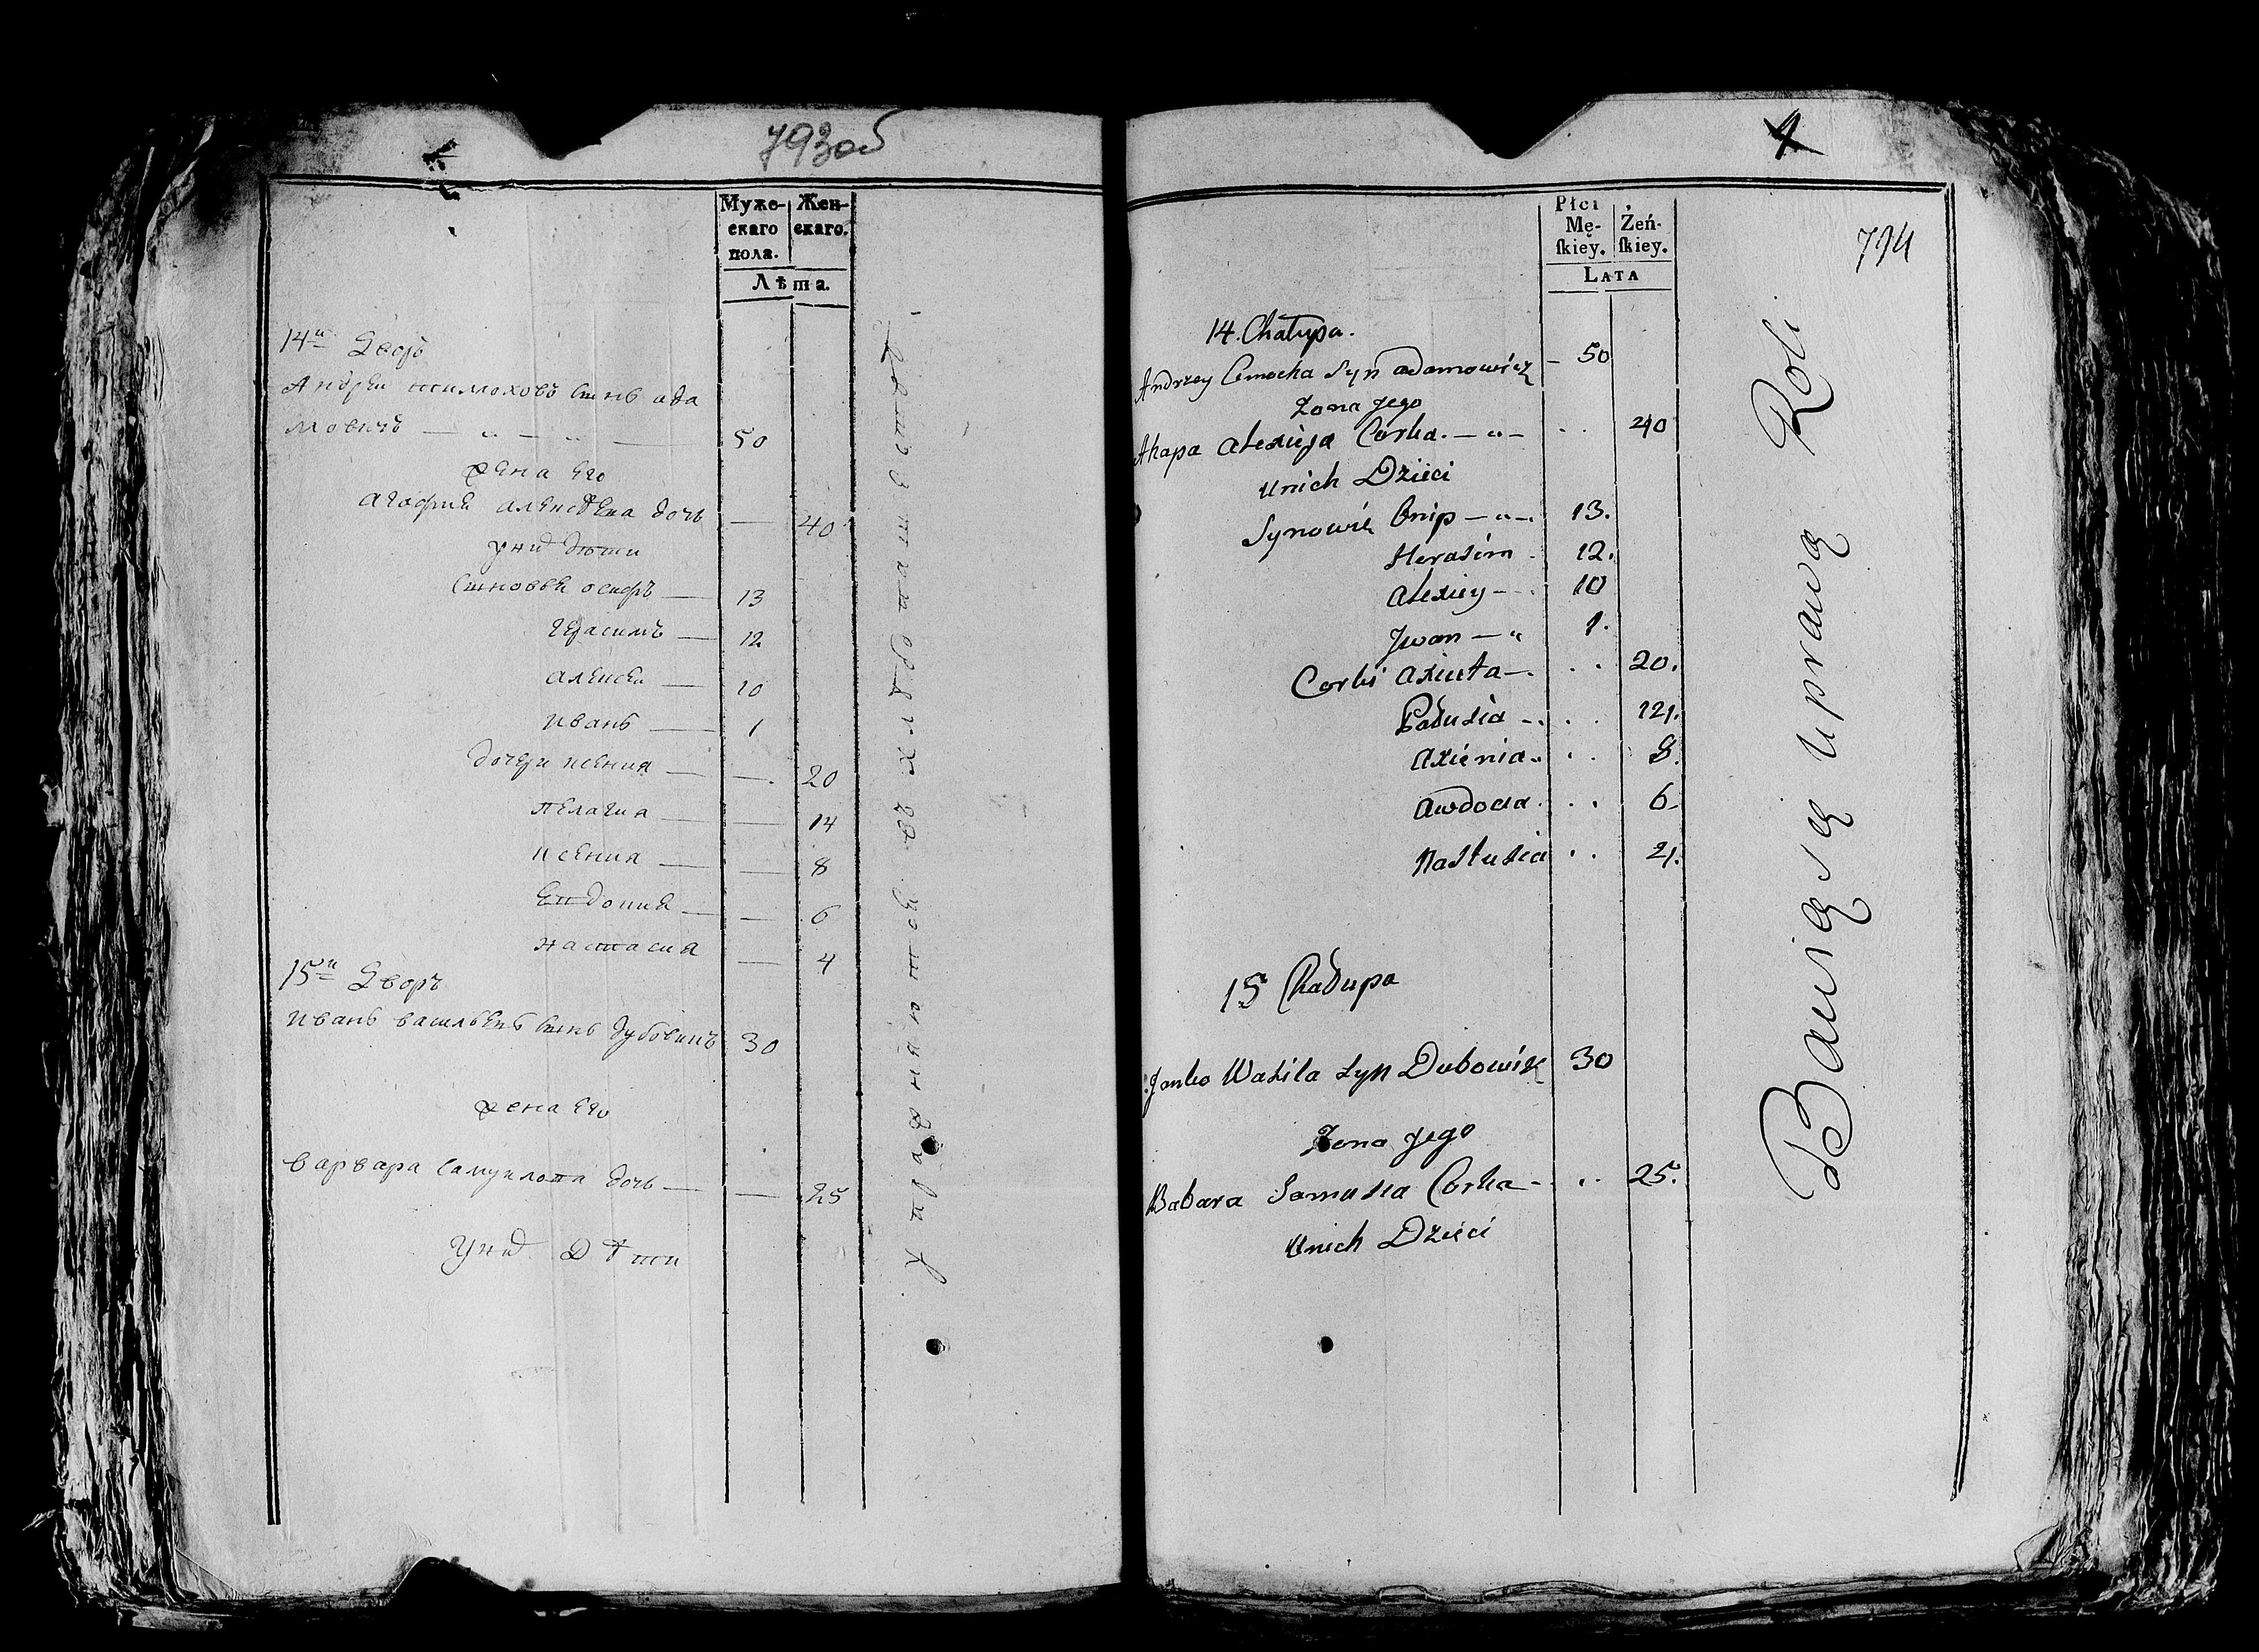 793об
Муже-
скаго
пола.
Жен-
скаго.
Лѣта.
14й Дворъ
Андрей тимоховъ сынъ ада
мовичъ — „ — „ — 50
жена его
агафия алексѣева дочь — 40
у них дѣти
Сыновья осифъ — 13
герасимъ — 12
алексей — 10
иванъ — 1
дочери ксения — — 20
пелагия — — 14
ксения — — 8
Евдокия — — 6
настасия — 4
15й Дворъ
иванъ васильевъ сынъ дубовикъ 30
жена его
варвара самуйлова дочь — — 25
У них Дѣти
4
794
Płci
Mę-
ſkiey.
Żeń-
ſkiey.
LATA
14. Chałupa.
Andrzey Cimocha Syn adamowicz – 50
Zona jego
Ahapa alexieja Corka. – „ – . . 40
Unich Dzieci
Synowie Osip – „ – 13.
Herasim . 12.
alexiey – . 10
Jwan – „ 1.
Corki axiuta – . . . 20.
Pałusia – . . . 14.
axienia „ . . 8.
awdocia . . . 6.
Nastusia . . 4.
15 Chałupa
Janko Wasila syn Dubowik 30
Zona jego
Babara Samusia Corka – . . . 25.
Unich Dzieci
Bawią się uprawą Roli